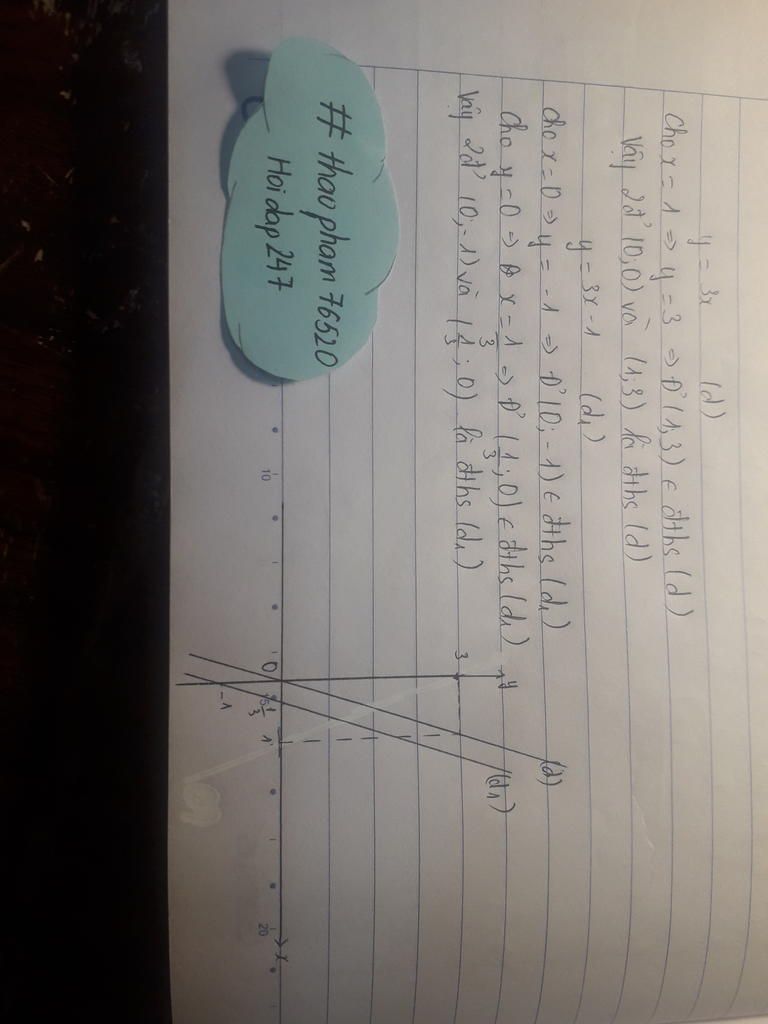 y = 3x (d)
Cho x = 1 => y = 3 => Đ' (1; 3) ∈ đths (d)
Vậy 2đ' (0; 0) và (1; 3) là đths (d)
y = 3x - 1 (d1)
Cho x = 0 => y = -1 => Đ' (0; -1) ∈ đths (d1)
Cho y = 0 => x = 1/3 => Đ' (1/3; 0) ∈ đths (d1)
Vậy 2đ' (0; -1) và (1/3; 0) là đths (d1)
# thaopham76520
Hoidap247
y
(d)
(d1)
3
0
1/3
1
-1
x
5
10
20